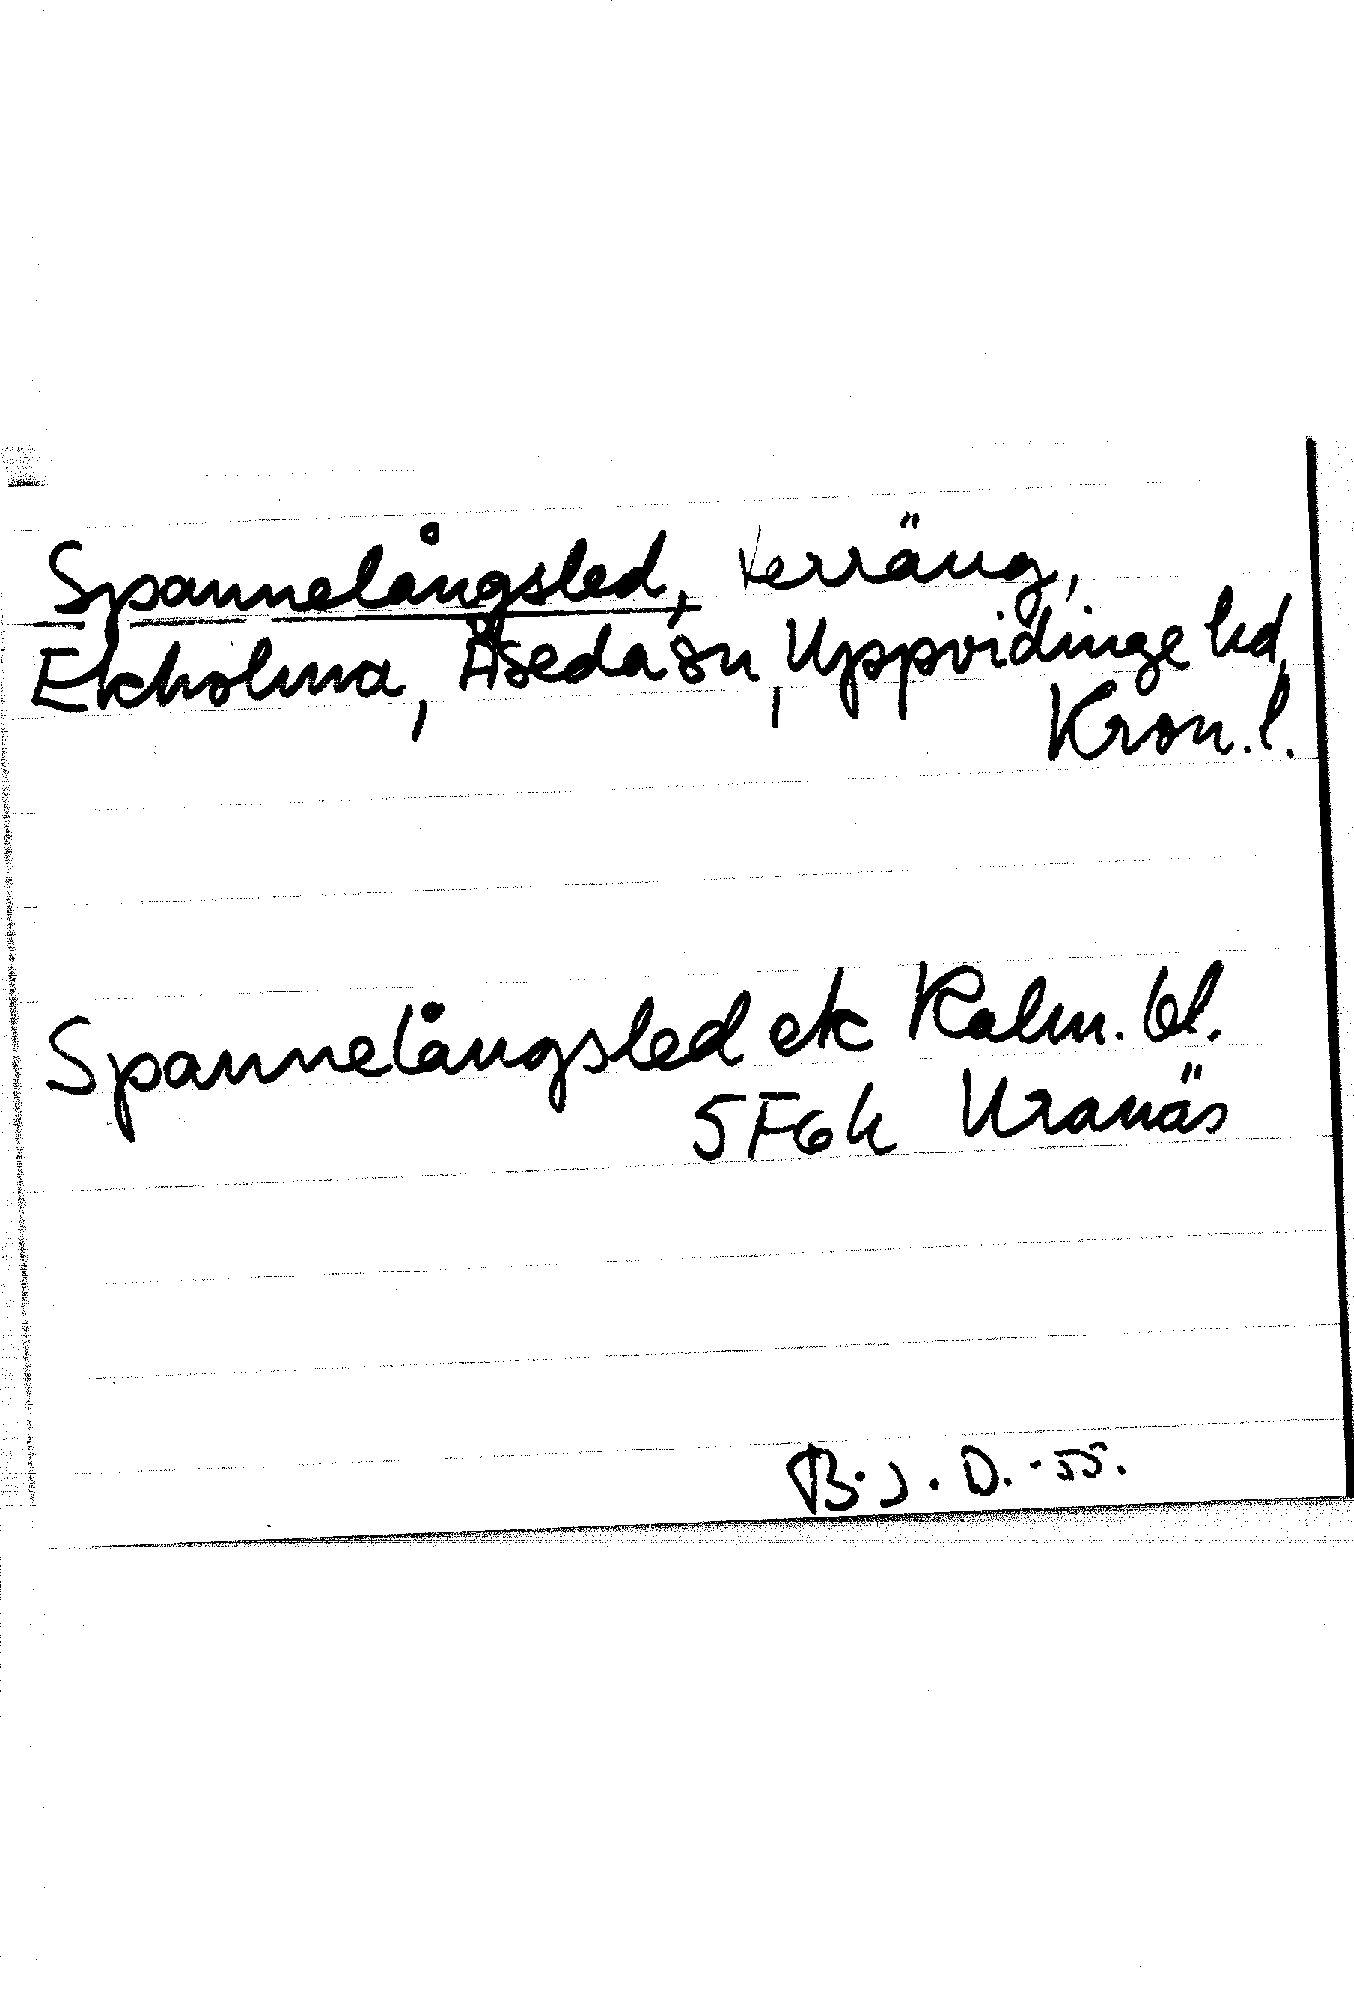 Spannelångsled, terräng,
Ekholma, Åseda sn, Uppvidinge hd,
Kron. l.
Spannelångsled ek Kalm. bl.
5F6h Kranäs
B. J. D. -55.